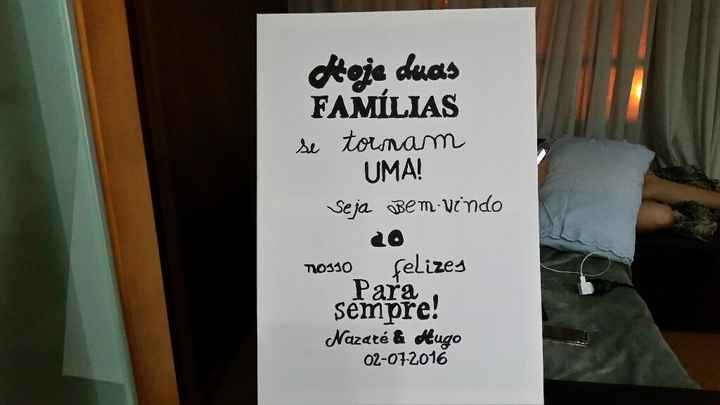 Hoje duas
FAMÍLIAS
se tornam
UMA!
seja Bem-vindo
ao
nosso felizes
Para
sempre!
Nazaré & Hugo
02-07-2016